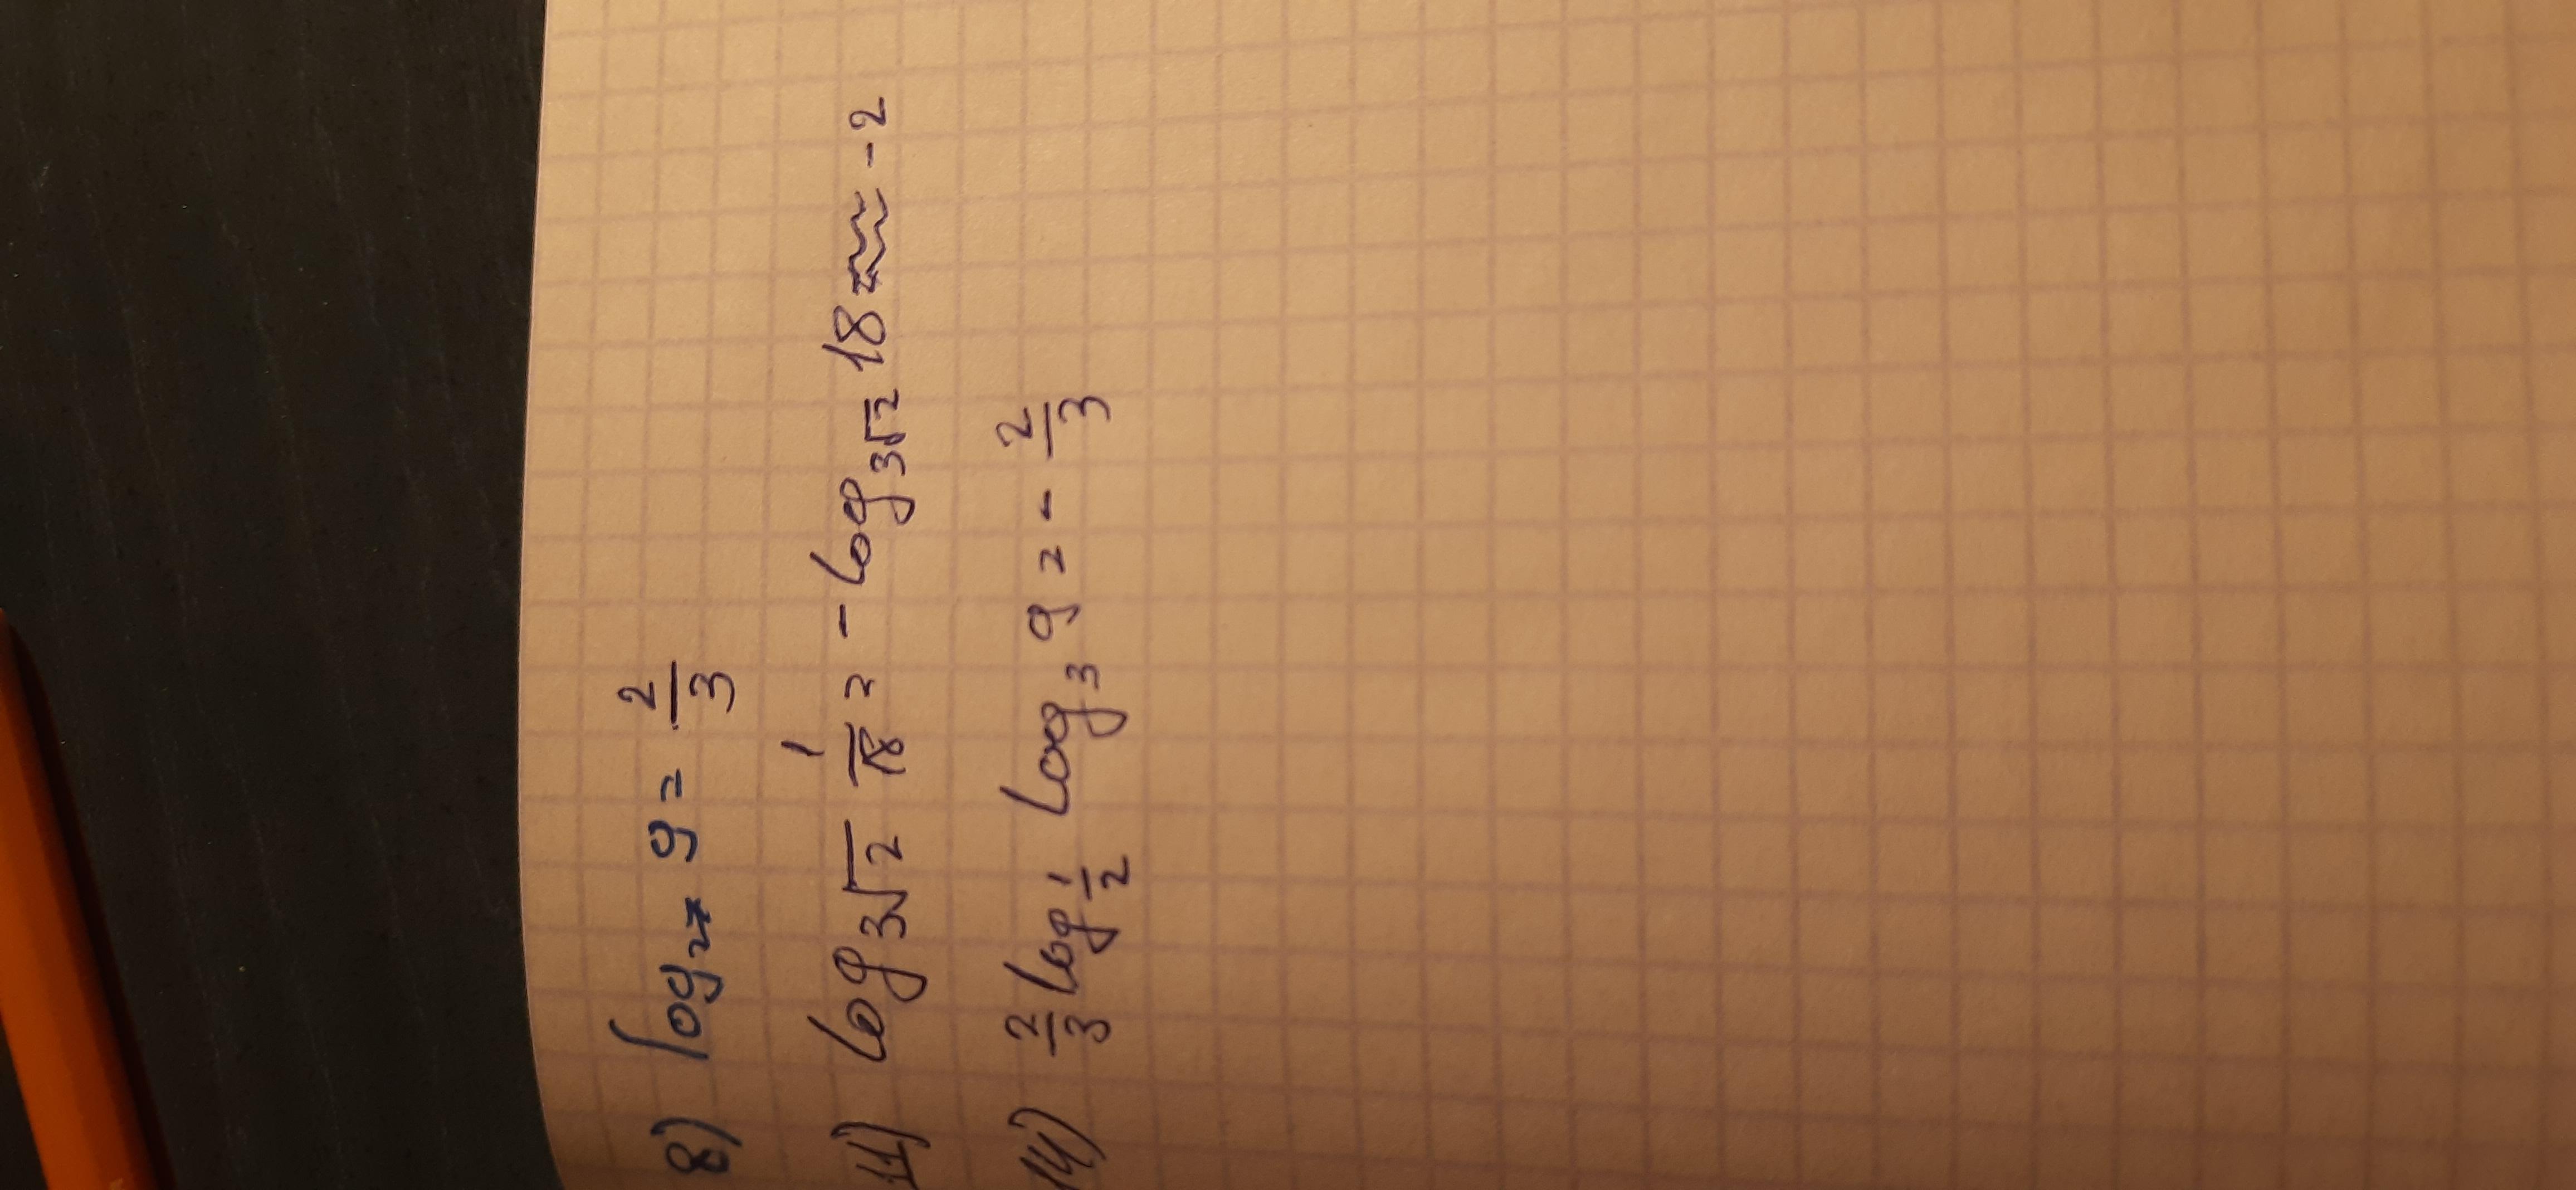 8) log₂₇ 9 = 2/3
11) log₃√₂ 1/18 = - log₃√₂ 18 = - 2
14) 2/3 log₁/₂ log₃ 9 = - 2/3